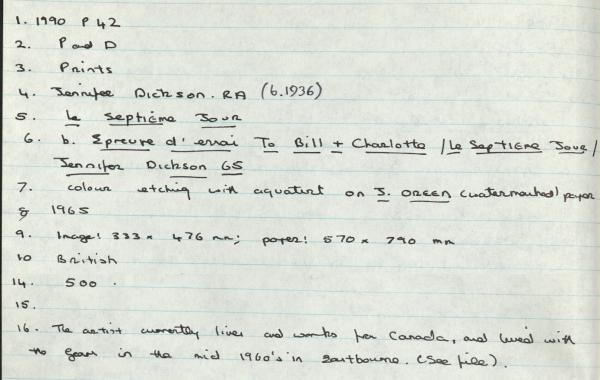 1. 1990 P 42
2. P and D
3. Prints
4. Jennifer Dickson. RA (b.1936)
5. le Septième Jour
6. b. Epreuve d'essai To Bill + Charlotte / le Septième Jour /
Jennifer Dickson 65
7. colour etching with aquatint on J. GREEN (watermarked) paper
8 1965
9. Image: 333 x 476 mm; paper: 570 x 790 mm
10 British
14. 500.
15.
16. The artist currently lives and works in Canada, and lived with
the in the mid 1960's in Eastbourne. (See file).